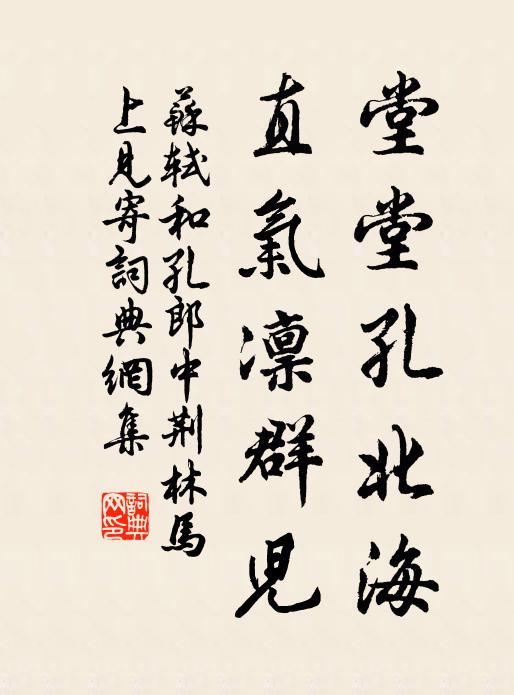 堂堂孔北海
直氣凛群兒
蘇軾和孔郎中荆林馬
上見寄詞典網集
詞典網印